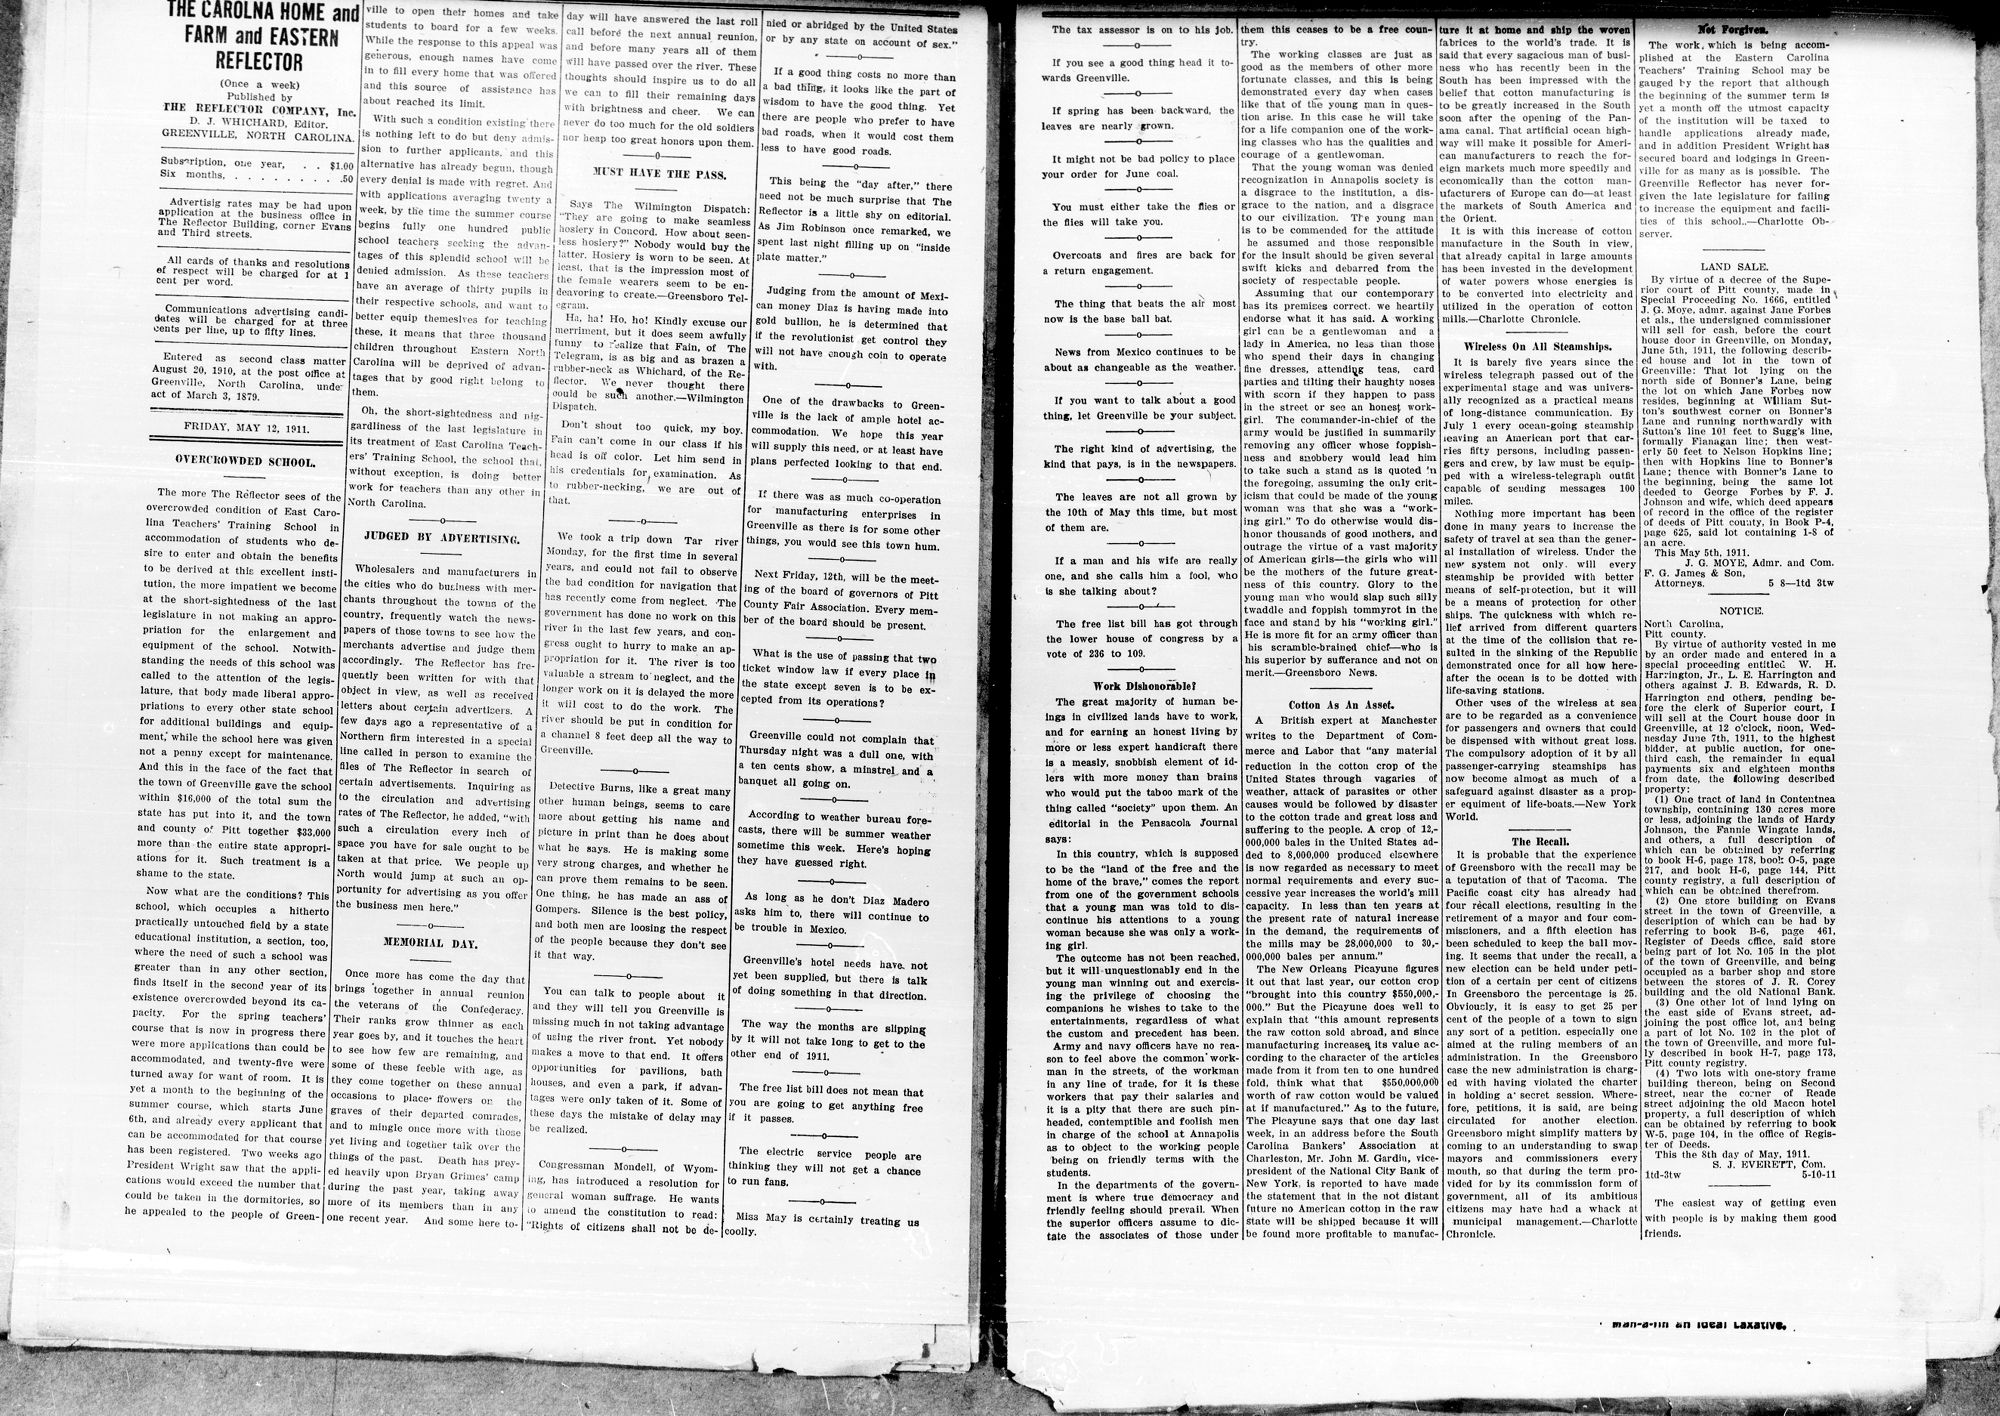 THE CAROLNA HOME and
FARM and EASTERN
REFLECTOR
(Once a week)
Published by
THE REFLECTOR COMPANY, Inc.
D. J. WHICHARD, Editor.
GREENVILLE, NORTH CAROLINA.
Subscription, one year, . . $1.00
Six months, . . . . . . . . . .50
Advertisig rates may be had upon
application at the business office in
The Reflector Building, corner Evans
and Third streets.
All cards of thanks and resolutions
of respect will be charged for at 1
cent per word.
Communications advertising candi-
dates will be charged for at three
cents per line, up to fifty lines.
Entered as second class matter
August 20, 1910, at the post office at
Greenville, North Carolina, under
act of March 3, 1879.
FRIDAY, MAY 12, 1911.
OVERCROWDED SCHOOL.
The more The Reflector sees of the
overcrowded condition of East Caro-
lina Teachers' Training School in
accommodation of students who de-
sire to enter and obtain the benefits
to be derived at this excellent insti-
tution, the more impatient we become
at the short-sightedness of the last
legislature in not making an appro-
priation for the enlargement and
equipment of the school. Notwith-
standing the needs of this school was
called to the attention of the legis-
lature, that body made liberal appro-
priations to every other state school
for additional buildings and equip-
ment, while the school here was given
not a penny except for maintenance.
And this in the face of the fact that
the town of Greenville gave the school
within $16,000 of the total sum the
state has put into it, and the town
and county of Pitt together $33,000
more than the entire state appropri-
ations for it. Such treatment is a
shame to the state.
Now what are the conditions? This
school, which occupies a hitherto
practically untouched field by a state
educational institution, a section, too,
where the need of such a school was
greater than in any other section,
finds itself in the second year of its
existence overcrowded beyond its ca-
pacity. For the spring teachers'
course that is now in progress there
were more applications than could be
accommodated, and twenty-five were
turned away for want of room. It is
yet a month to the beginning of the
summer course, which starts June
6th, and already every applicant that
can be accommodated for that course
has been registered. Two weeks ago
President Wright saw that the appli-
cations would exceed the number that
could be taken in the dormitories, so
he appealed to the people of Green-
ville to open their homes and take
students to board for a few weeks.
While the response to this appeal was
generous, enough names have come
in to fill every home that was offered
and this source of assistance has
about reached its limit.
With such a condition existing there
is nothing left to do but deny admis-
sion to further applicants, and this
alternative has already begun, though
every denial is made with regret. And
with applications averaging twenty a
week, by the time the summer course
begins fully one hundred public
school teachers seeking the advan-
tages of this splendid school will be
denied admission. As these teachers
have an average of thirty pupils in
their respective schools, and want to
better equip themseives for teaching
these, it means that three thousand
children throughout Eastern North
Carolina will be deprived of advan-
tages that by good right belong to
them.
Oh, the short-sightedness and nig-
gardliness of the last legislature in
its treatment of East Carolina Teach-
ers' Training School, the school that,
without exception, is doing better
work for teachers than any other in
North Carolina.
JUDGED BY ADVERTISING.
Wholesalers and manufacturers in
the cities who do business with mer-
chants throughout the towns of the
country, frequently watch the news-
papers of those towns to see how the
merchants advertise and judge them
accordingly. The Reflector has fre-
quently been written for with that
object in view, as well as received
letters about certain advertisers. A
few days ago a representative of a
Northern firm interested in a special
line called in person to examine the
files of The Reflector in search of
certain advertisements. Inquiring as
to the circulation and advertising
rates of The Reflector, he added, "with
such a circulation every inch of
space you have for sale ought to be
taken at that price. We people up
North would jump at such an op-
portunity for advertising as you offer
the business men here."
MEMORIAL DAY.
Once more has come the day that
brings together in annual reunion
the veterans of the Confederacy.
Their ranks grow thinner as each
year goes by, and it touches the heart
to see how few are remaining, and
some of these feeble with age, as
they come together on these annual
occasions to place flowers on the
graves of their departed comrades,
and to mingle once more with those
yet living and together talk over the
things of the past. Death has prey-
ed heavily upon Bryan Grimes' camp
during the past year, taking away
more of its members than in any
one recent year. And some here to-
day will have answered the last roll
call before the next annual reunion,
and before many years all of them
will have passed over the river. These
thoughts should inspire us to do all
we can to fill their remaining days
with brightness and cheer. We can
never do too much for the old soldiers
nor heap too great honors upon them.
MUST HAVE THE PASS.
Says The Wilmington Dispatch:
"They are going to make seamless
hosiery in Concord. How about seen-
less hosiery?" Nobody would buy the
latter. Hosiery is worn to be seen. At
least, that is the impression most of
the female wearers seem to be en-
deavoring to create.—Greensboro Tel-
egram.
Ha, ha! Ho, ho! Kindly excuse our
merriment, but it does seem awfully
funny to realize that Fain, of The
Telegram, is as big and as brazen a
rubber-neck as Whichard, of the Re-
flector. We never thought there
could be such another.—Wilmington
Dispatch.
Don't shout too quick, my boy.
Fain can't come in our class if his
head is off color. Let him send in
his credentials for examination. As
to rubber-necking, we are out of
that.
We took a trip down Tar river
Monday, for the first time in several
years, and could not fail to observe
the bad condition for navigation that
has recently come from neglect. The
government has done no work on this
river in the last few years, and con-
gress ought to hurry to make an ap-
propriation for it. The river is too
valuable a stream to neglect, and the
longer work on it is delayed the more
it will cost to do the work. The
river should be put in condition for
a channel 8 feet deep all the way to
Greenville.
Detective Burns, like a great many
other human beings, seems to care
more about getting his name and
picture in print than he does about
what he says. He is making some
very strong charges, and whether he
can prove them remains to be seen.
One thing, he has made an ass of
Gompers. Silence is the best policy,
and both men are loosing the respect
of the people because they don't see
it that way.
You can talk to people about it
and they will tell you Greenville is
missing much in not taking advantage
of using the river front. Yet nobody
makes a move to that end. It offers
opportunities for pavilions, bath
houses, and even a park, if advan-
tages were only taken of it. Some of
these days the mistake of delay may
be realized.
Congressman Mondell, of Wyom-
ing, has introduced a resolution for
general woman suffrage. He wants
to amend the constitution to read:
"Rights of citizens shall not be de-
nied or abridged by the United States
or by any state on account of sex."
If a good thing costs no more than
a bad thing, it looks like the part of
wisdom to have the good thing. Yet
there are people who prefer to have
bad roads, when it would cost them
less to have good roads.
This being the "day after," there
need not be much surprise that The
Reflector is a little shy on editorial.
As Jim Robinson once remarked, we
spent last night filling up on "inside
plate matter."
Judging from the amount of Mexi-
can money Diaz is having made into
gold bullion, he is determined that
if the revolutionist get control they
will not have enough coin to operate
with.
One of the drawbacks to Green-
ville is the lack of ample hotel ac-
commodation. We hope this year
will supply this need, or at least have
plans perfected looking to that end.
If there was as much co-operation
for manufacturing enterprises in
Greenville as there is for some other
things, you would see this town hum.
Next Friday, 12th, will be the meet-
ing of the board of governors of Pitt
County Fair Association. Every mem-
ber of the board should be present.
What is the use of passing that two
ticket window law if every place in
the state except seven is to be ex-
cepted from its operations?
Greenville could not complain that
Thursday night was a dull one, with
a ten cents show, a minstrel and a
banquet all going on.
According to weather bureau fore-
casts, there will be summer weather
sometime this week. Here's hoping
they have guessed right.
As long as he don't Diaz Madero
asks him to, there will continue to
be trouble in Mexico.
Greenville's hotel needs have not
yet been supplied, but there is talk
of doing something in that direction.
The way the months are slipping
by it will not take long to get to the
other end of 1911.
The free list bill does not mean that
you are going to get anything free
if it passes.
The electric service people are
thinking they will not get a chance
to run fans.
Miss May is certainly treating us
coolly.
The tax assessor is on to his job.
If you see a good thing head it to-
wards Greenville.
If spring has been backward, the
leaves are nearly grown.
It might not be bad policy to place
your order for June coal.
You must either take the flies or
the flies will take you.
Overcoats and fires are back for
a return engagement.
The thing that beats the air most
now is the base ball bat.
News from Mexico continues to be
about as changeable as the weather.
If you want to talk about a good
thing, let Greenville be your subject.
The right kind of advertising, the
kind that pays, is in the newspapers.
The leaves are not all grown by
the 10th of May this time, but most
of them are.
If a man and his wife are really
one, and she calls him a fool, who
is she talking about?
The free list bill has got through
the lower house of congress by a
vote of 236 to 109.
Work Dishonorable?
The great majority of human be-
ings in civilized lands have to work,
and for earning an honest living by
more or less expert handicraft there
is a measly, snobbish element of id-
lers with more money than brains
who would put the taboo mark of the
thing called "society" upon them. An
editorial in the Pensacola Journal
says:
In this country, which is supposed
to be the "land of the free and the
home of the brave," comes the report
from one of the government schools
that a young man was told to dis-
continue his attentions to a young
woman because she was only a work-
ing girl.
The outcome has not been reached,
but it will unquestionably end in the
young man winning out and exercis-
ing the privilege of choosing the
companions he wishes to take to the
entertainments, regardless of what
the custom and precedent has been.
Army and navy officers have no rea-
son to feel above the common work-
man in the streets, of the workman
in any line of trade, for it is these
workers that pay their salaries and
it is a pity that there are such pin-
headed, contemptible and foolish men
in charge of the school at Annapolis
as to object to the working people
being on friendly terms with the
students.
In the departments of the govern-
ment is where true democracy and
friendly feeling should prevail. When
the superior officers assume to dic-
tate the associates of those under
them this ceases to be a free coun-
try.
The working classes are just as
good as the members of other more
fortunate classes, and this is being
demonstrated every day when cases
like that of the young man in ques-
tion arise. In this case he will take
for a life companion one of the work-
ing classes who has the qualities and
courage of a gentlewoman.
That the young woman was denied
recognition in Annapolis society is
a disgrace to the institution, a dis-
grace to the nation, and a disgrace
to our civilization. The young man
is to be commended for the attitude
he assumed and those responsible
for the insult should be given several
swift kicks and debarred from the
society of respectable people.
Assuming that our contemporary
has its premises correct, we heartily
endorse what it has said. A working
girl can be a gentlewoman and a
lady in America, no less than those
who spend their days in changing
fine dresses, attending teas, card
parties and tilting their haughty noses
with scorn if they happen to pass
in the street or see an honest work-
girl. The commander-in-chief of the
army would be justified in summarily
removing any officer whose foppish-
ness and snobbery would lead him
to take such a stand as is quoted in
the foregoing, assuming the only crit-
icism that could be made of the young
woman was that she was a "work-
ing girl." To do otherwise would dis-
honor thousands of good mothers, and
outrage the virtue of a vast majority
of American girls—the girls who will
be the mothers of the future great-
ness of this country. Glory to the
young man who would slap such silly
twaddle and foppish tommyrot in the
face and stand by his "working girl."
He is more fit for an army officer than
his scramble-brained chief—who is
his superior by sufferance and not on
merit.—Greensboro News.
Cotton As An Asset.
A British expert at Manchester
writes to the Department of Com-
merce and Labor that "any material
reduction in the cotton crop of the
United States through vagaries of
weather, attack of parasites or other
causes would be followed by disaster
to the cotton trade and great loss and
suffering to the people. A crop of 12,-
000,000 bales in the United States ad-
ded to 8,000,000 produced elsewhere
is now regarded as necessary to meet
normal requirements and every suc-
cessive year increases the world's mill
capacity. In less than ten years at
the present rate of natural increase
in the demand, the requirements of
the mills may be 28,000,000 to 30,-
000,000 bales per annum."
The New Orleans Picayune figures
it out that last year, our cotton crop
"brought into this country $550,000,-
000." But the Picayune does well to
explain that "this amount represents
the raw cotton sold abroad, and since
manufacturing increases its value ac-
cording to the character of the articles
made from it from ten to one hundred
fold, think what that $550,000,000
worth of raw cotton would be valued
at if manufactured." As to the future,
The Picayune says that one day last
week, in an address before the South
Carolina Bankers' Association at
Charleston, Mr. John M. Gardin, vice-
president of the National City Bank of
New York, is reported to have made
the statement that in the not distant
future no American cotton in the raw
state will be shipped because it will
be found more profitable to manufac-
ture it at home and ship the woven
fabrices to the world's trade. It is
said that every sagacious man of busi-
ness who has recently been in the
South has been impressed with the
belief that cotton manufacturing is
to be greatly increased in the South
soon after the opening of the Pan-
ama canal. That artificial ocean high-
way will make it possible for Ameri-
can manufacturers to reach the for-
eign markets much more speedily and
economically than the cotton man-
ufacturers of Europe can do—at least
the markets of South America and
the Orient.
It is with this increase of cotton
manufacture in the South in view,
that already capital in large amounts
has been invested in the development
of water powers whose energies is
to be converted into electricity and
utilized in the operation of cotton
mills.—Charlotte Chronicle.
Wireless On All Steamships.
It is barely five years since the
wireless telegraph passed out of the
experimental stage and was univers-
ally recognized as a practical means
of long-distance communication. By
July 1 every ocean-going steamship
leaving an American port that car-
ries fifty persons, including passen-
gers and crew, by law must be equip-
ped with a wireless-telegraph outfit
capable of sending messages 100
miles.
Nothing more important has been
done in many years to increase the
safety of travel at sea than the gener-
al installation of wireless. Under the
new system not only will every
steamship be provided with better
means of self-protection, but it will
be a means of protection for other
ships. The quickness with which re-
lief arrived from different quarters
at the time of the collision that re-
sulted in the sinking of the Republic
demonstrated once for all how here-
after the ocean is to be dotted with
life-saving stations.
Other uses of the wireless at sea
are to be regarded as a convenience
for passengers and owners that could
be dispensed with without great loss.
The compulsory adoption of it by all
passenger-carrying steamships has
now become almost as much of a
safeguard against disaster as a prop-
er equiment of life-boats.—New York
World.
The Recall.
It is probable that the experience
of Greensboro with the recall may be
a teputation of that of Tacoma. The
Pacific coast city has already had
four recall elections, resulting in the
retirement of a mayor and four com-
missioners, and a fifth election has
been scheduled to keep the ball mov-
ing. It seems that under the recall, a
new election can be held under peti-
tion of a certain per cent of citizens
In Greensboro the percentage is 25.
Obviously, it is easy to get 25 per
cent of the people of a town to sign
any sort of a petition, especially one
aimed at the ruling members of an
administration. In the Greensboro
case the new administration is charg-
ed with having violated the charter
in holding a secret session. Where-
fore, petitions, it is said, are being
circulated for another election.
Greensboro might simplify matters by
coming to an understanding to swap
mayors and commissioners every
month, so that during the term pro-
vided for by its commission form of
government, all of its ambitious
citizens may have had a whack at
municipal management.—Charlotte
Chronicle.
Not Forgiven.
The work, which is being accom-
plished at the Eastern Carolina
Teachers' Training School may be
gauged by the report that although
the beginning of the summer term is
yet a month off the utmost capacity
of the institution will be taxed to
handle applications already made,
and in addition President Wright has
secured board and lodgings in Green-
ville for as many as is possible. The
Greenville Reflector has never for-
given the late legislature for failing
to increase the equipment and facili-
ties of this school..—Charlotte Ob-
server.
LAND SALE.
By virtue of a decree of the Supe-
rior court of Pitt county, made in
Special Proceeding No. 1666, entitled
J. G. Moye, admr. against Jane Forbes
et als., the undersigned commissioner
will sell for cash, before the court
house door in Greenville, on Monday,
June 5th, 1911, the following describ-
ed house and lot in the town of
Greenville: That lot lying on the
north side of Bonner's Lane, being
the lot on which Jane Forbes now
resides, beginning at William Sut-
ton's southwest corner on Bonner's
Lane and running northwardly with
Sutton's line 101 feet to Sugg's line,
formally Flanagan line; then west-
erly 50 feet to Nelson Hopkins line;
then with Hopkins line to Bonner's
Lane; thence with Bonner's Lane to
the beginning, being the same lot
deeded to George Forbes by F. J.
Johnson and wife, which deed appears
of record in the office of the register
of deeds of Pitt county, in Book P-4,
page 625, said lot containing 1-8 of
an acre.
This May 5th, 1911.
J. G. MOYE, Admr. and Com.
F. G. James & Son,
Attorneys. 5 8—1td 3tw
NOTICE.
North Carolina,
Pitt county.
By virtue of authority vested in me
by an order made and entered in a
special proceeding entitled W. H.
Harrington, Jr., L. E. Harrington and
others against J. B. Edwards, R. D.
Harrington and others, pending be-
fore the clerk of Superior court, I
will sell at the Court house door in
Greenville, at 12 o'clock, noon, Wed-
nesday June 7th, 1911, to the highest
bidder, at public auction, for one-
third cash, the remainder in equal
payments six and eighteen months
from date, the following described
property:
(1) One tract of land in Contentnea
township, containing 130 acres more
or less, adjoining the lands of Hardy
Johnson, the Fannie Wingate lands,
and others, a full description of
which can be obtained by referring
to book H-6, page 178, book O-5, page
217, and book H-6, page 144, Pitt
county registry, a full description of
which can be obtained therefrom.
(2) One store building on Evans
street in the town of Greenville, a
description of which can be had by
referring to book B-6, page 461,
Register of Deeds office, said store
being part of lot No. 105 in the plot
of the town of Greenville, and being
occupied as a barber shop and store
between the stores of J. R. Corey
building and the old National Bank.
(3) One other lot of land lying on
the east side of Evans street, ad-
joining the post office lot, and being
a part of lot No. 102 in the plot of
the town of Greenville, and more ful-
ly described in book H-7, page 173,
Pitt county registry.
(4) Two lots with one-story frame
building thereon, being on Second
street, near the corner of Reade
street adjoining the old Macon hotel
property, a full description of which
can be obtained by referring to book
W-5, page 104, in the office of Regis-
ter of Deeds.
This the 8th day of May, 1911.
S. J. EVERETT, Com.
1td-3tw 5-10-11
The easiest way of getting even
with people is by making them good
friends.
Man-a-lin an Ideal Laxative.